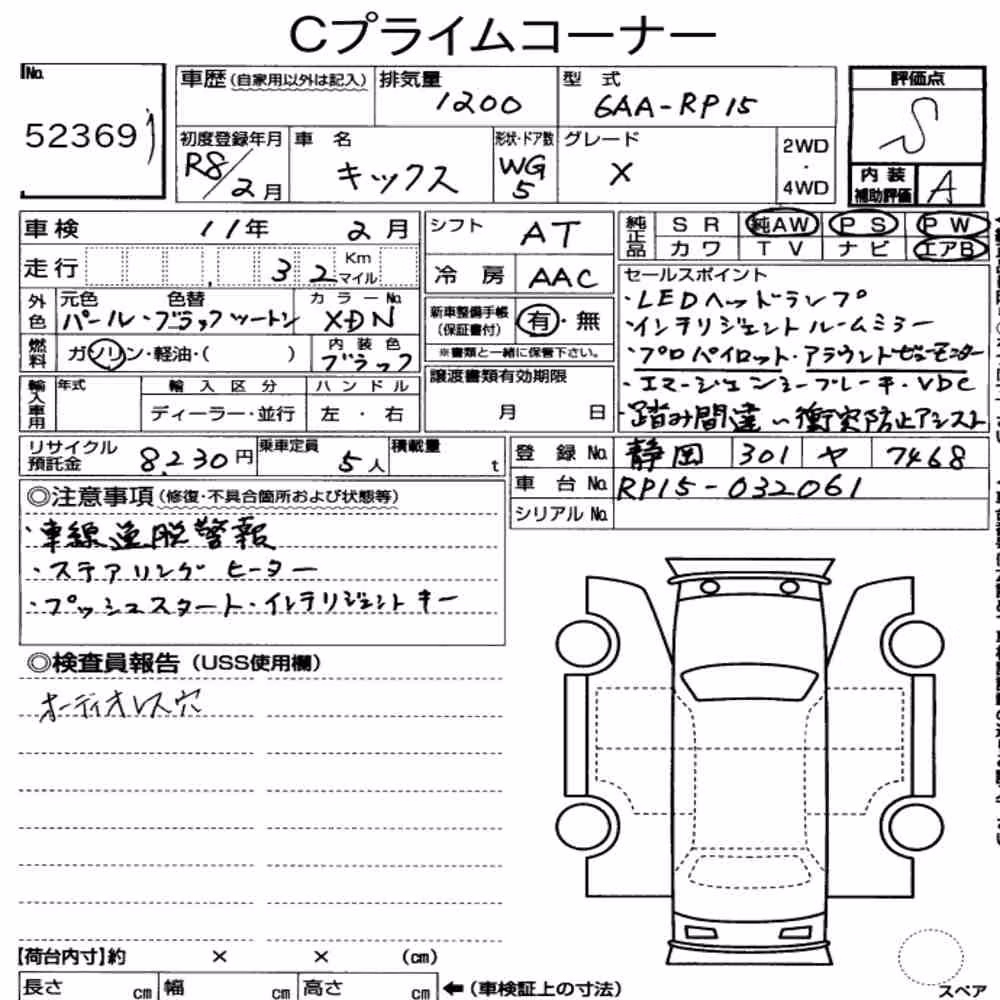 Cプライムコーナー
No.
52369
車歴(自家用以外は記入)
排気量
1200
型 式
6AA-RP15
初度登録年月
R8/2月
車 名
キックス
形状・ドア数
WG
5
グレード
X
2WD
・
4WD
評価点
S
内装
補助評価
A
車検
11年 2月
走行
32
Km
マイル
外色
元色 色替
パール・ブラックツートン
カラーNo.
XDN
燃料
ガソリン・軽油・( )
内装色
ブラック
輸入車用
年式
輸入区分
ディーラー・並行
ハンドル
左・右
シフト
AT
冷房
AAC
新車整備手帳
(保証書付)
有・無
※書類と一緒に保管下さい。
譲渡書類有効期限
月 日
純正品
SR 純AW PS PW
カワ TV ナビ エアB
セールスポイント
・LEDヘッドランプ
・インテリジェント ルームミラー
・プロパイロット・アラウンドビューモニター
・エマージェンシーブレーキ・VDC
・踏み間違い衝突防止アシスト
リサイクル
預託金
8,230円
乗車定員
5人
積載量
t
登録No.
静岡 301 ヤ 7468
車台No.
RP15-032061
シリアルNo.
◎注意事項(修復・不具合箇所および状態等)
・車線逸脱警報
・ステアリングヒーター
・プッシュスタート・インテリジェントキー
◎検査員報告(USS使用欄)
オーディオレス穴
【荷台内寸】約 × × (cm)
長さ cm 幅 cm 高さ cm ←(車検証上の寸法)
スペア